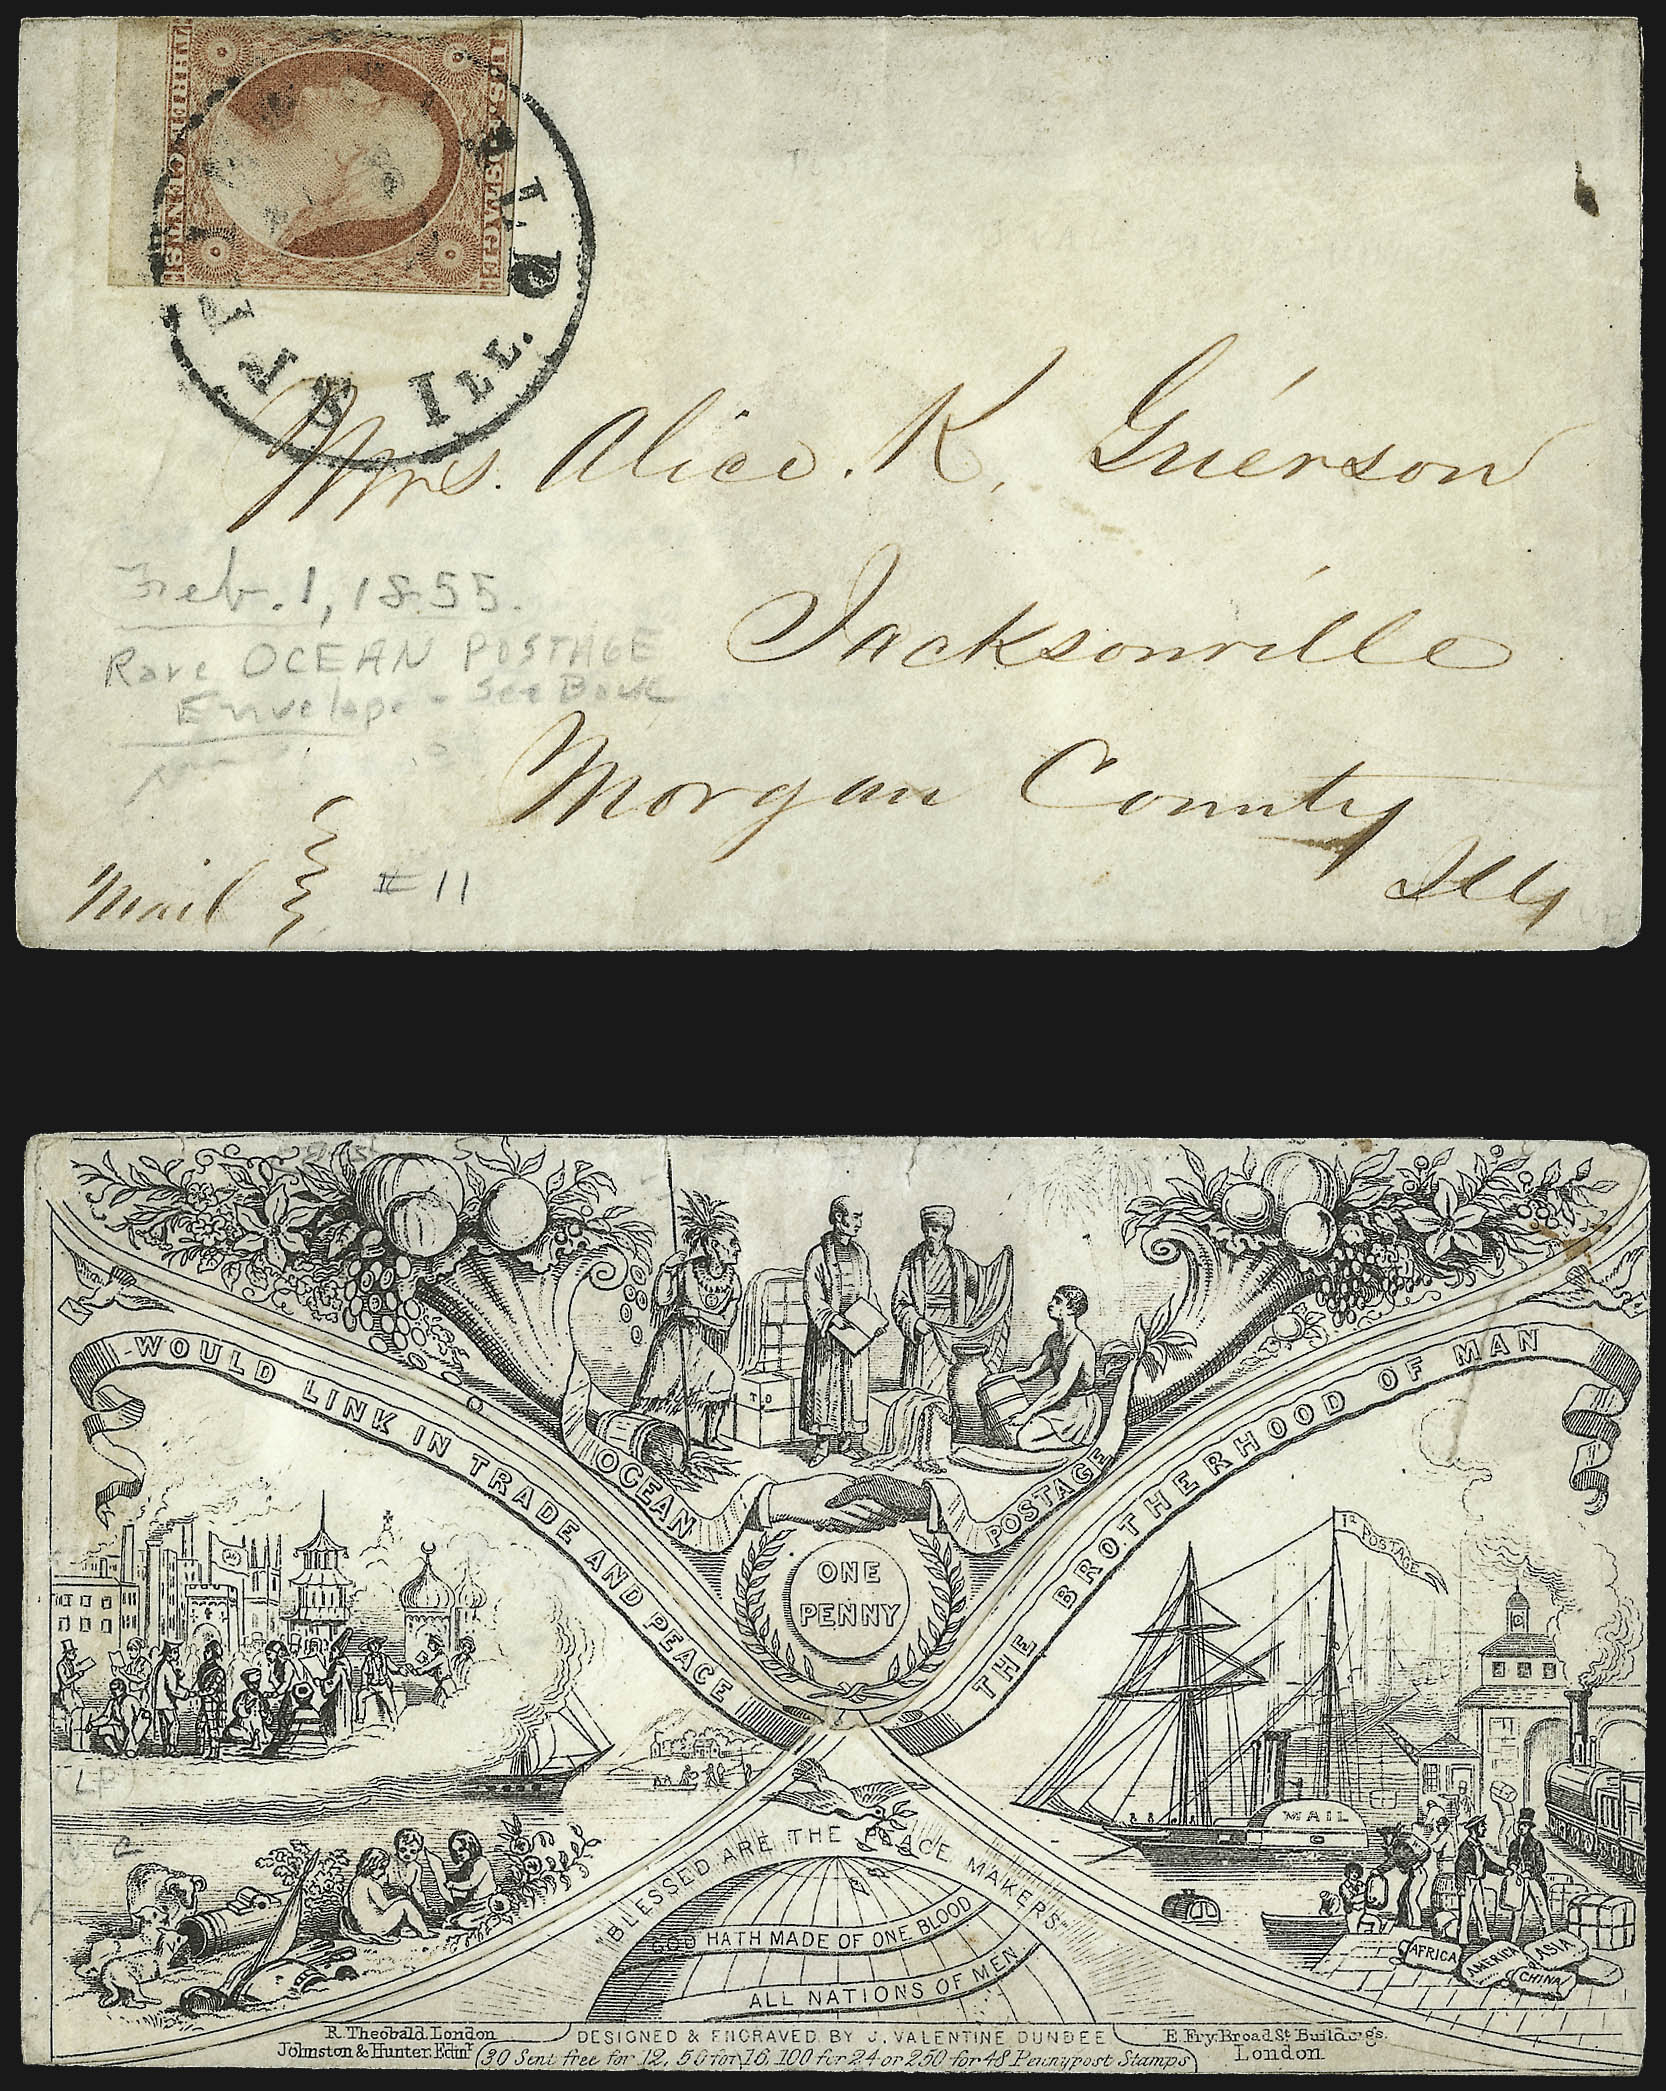 U.S. POSTAGE
THREE CENTS
ILL.
Mrs. Alice. K. Guérson
Jacksonville
Morgan County
Ills
Feb. 1, 1855.
Rare OCEAN POSTAGE
Envelope - See Back
Mail
#11
WOULD LINK IN TRADE AND PEACE
THE BROTHERHOOD OF MAN
OCEAN
POSTAGE
ONE
PENNY
1D POSTAGE
MAIL
BLESSED ARE THE PEACE MAKERS
GOD HATH MADE OF ONE BLOOD
ALL NATIONS OF MEN
AFRICA
AMERICA
ASIA
CHINA
R. Theobald. London
Johnston & Hunter. Edinr.
DESIGNED & ENGRAVED BY J. VALENTINE DUNDEE
E. Fry. Broad St. Buildings.
London
30 Sent free for 12, 50 for 16, 100 for 24 or 250 for 48 Pennypost Stamps